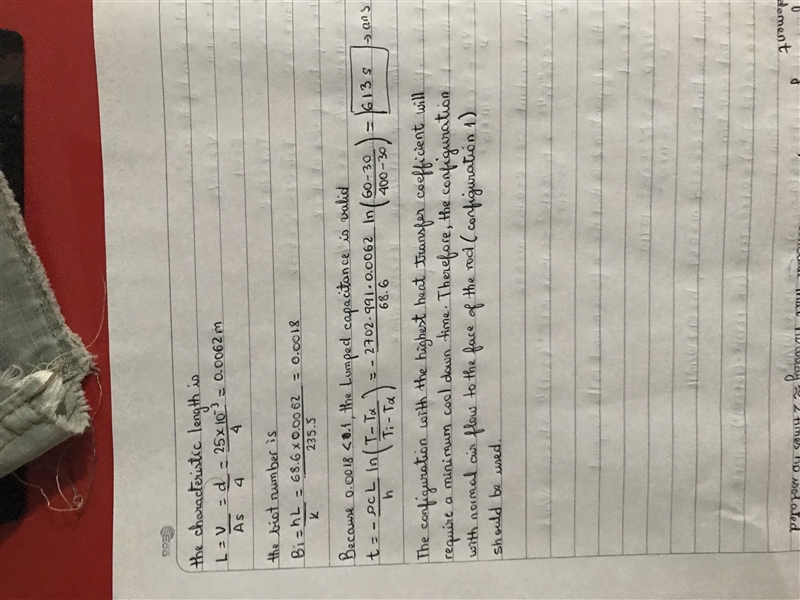 ECO
the characteristic length is
L = V/As = d/4 = 25×10⁻³/4 = 0.0062m
the biot number is
Bi = hL/K = 68.6×0.0062/235.5 = 0.0018
Because 0.0018 < 0.1, the Lumped capacitance is valid
t = - ρcL/h ln(T-Tα/Ti-Tα) = - 2702·991·0.0062/68.6 ln(60-30/400-30) = 613 s → ans
The configuration with the highest heat transfer coefficient will
require a minimum cool down time. Therefore, the configuration
with normal air flow to the face of the rod (configuration 1)
should be used.